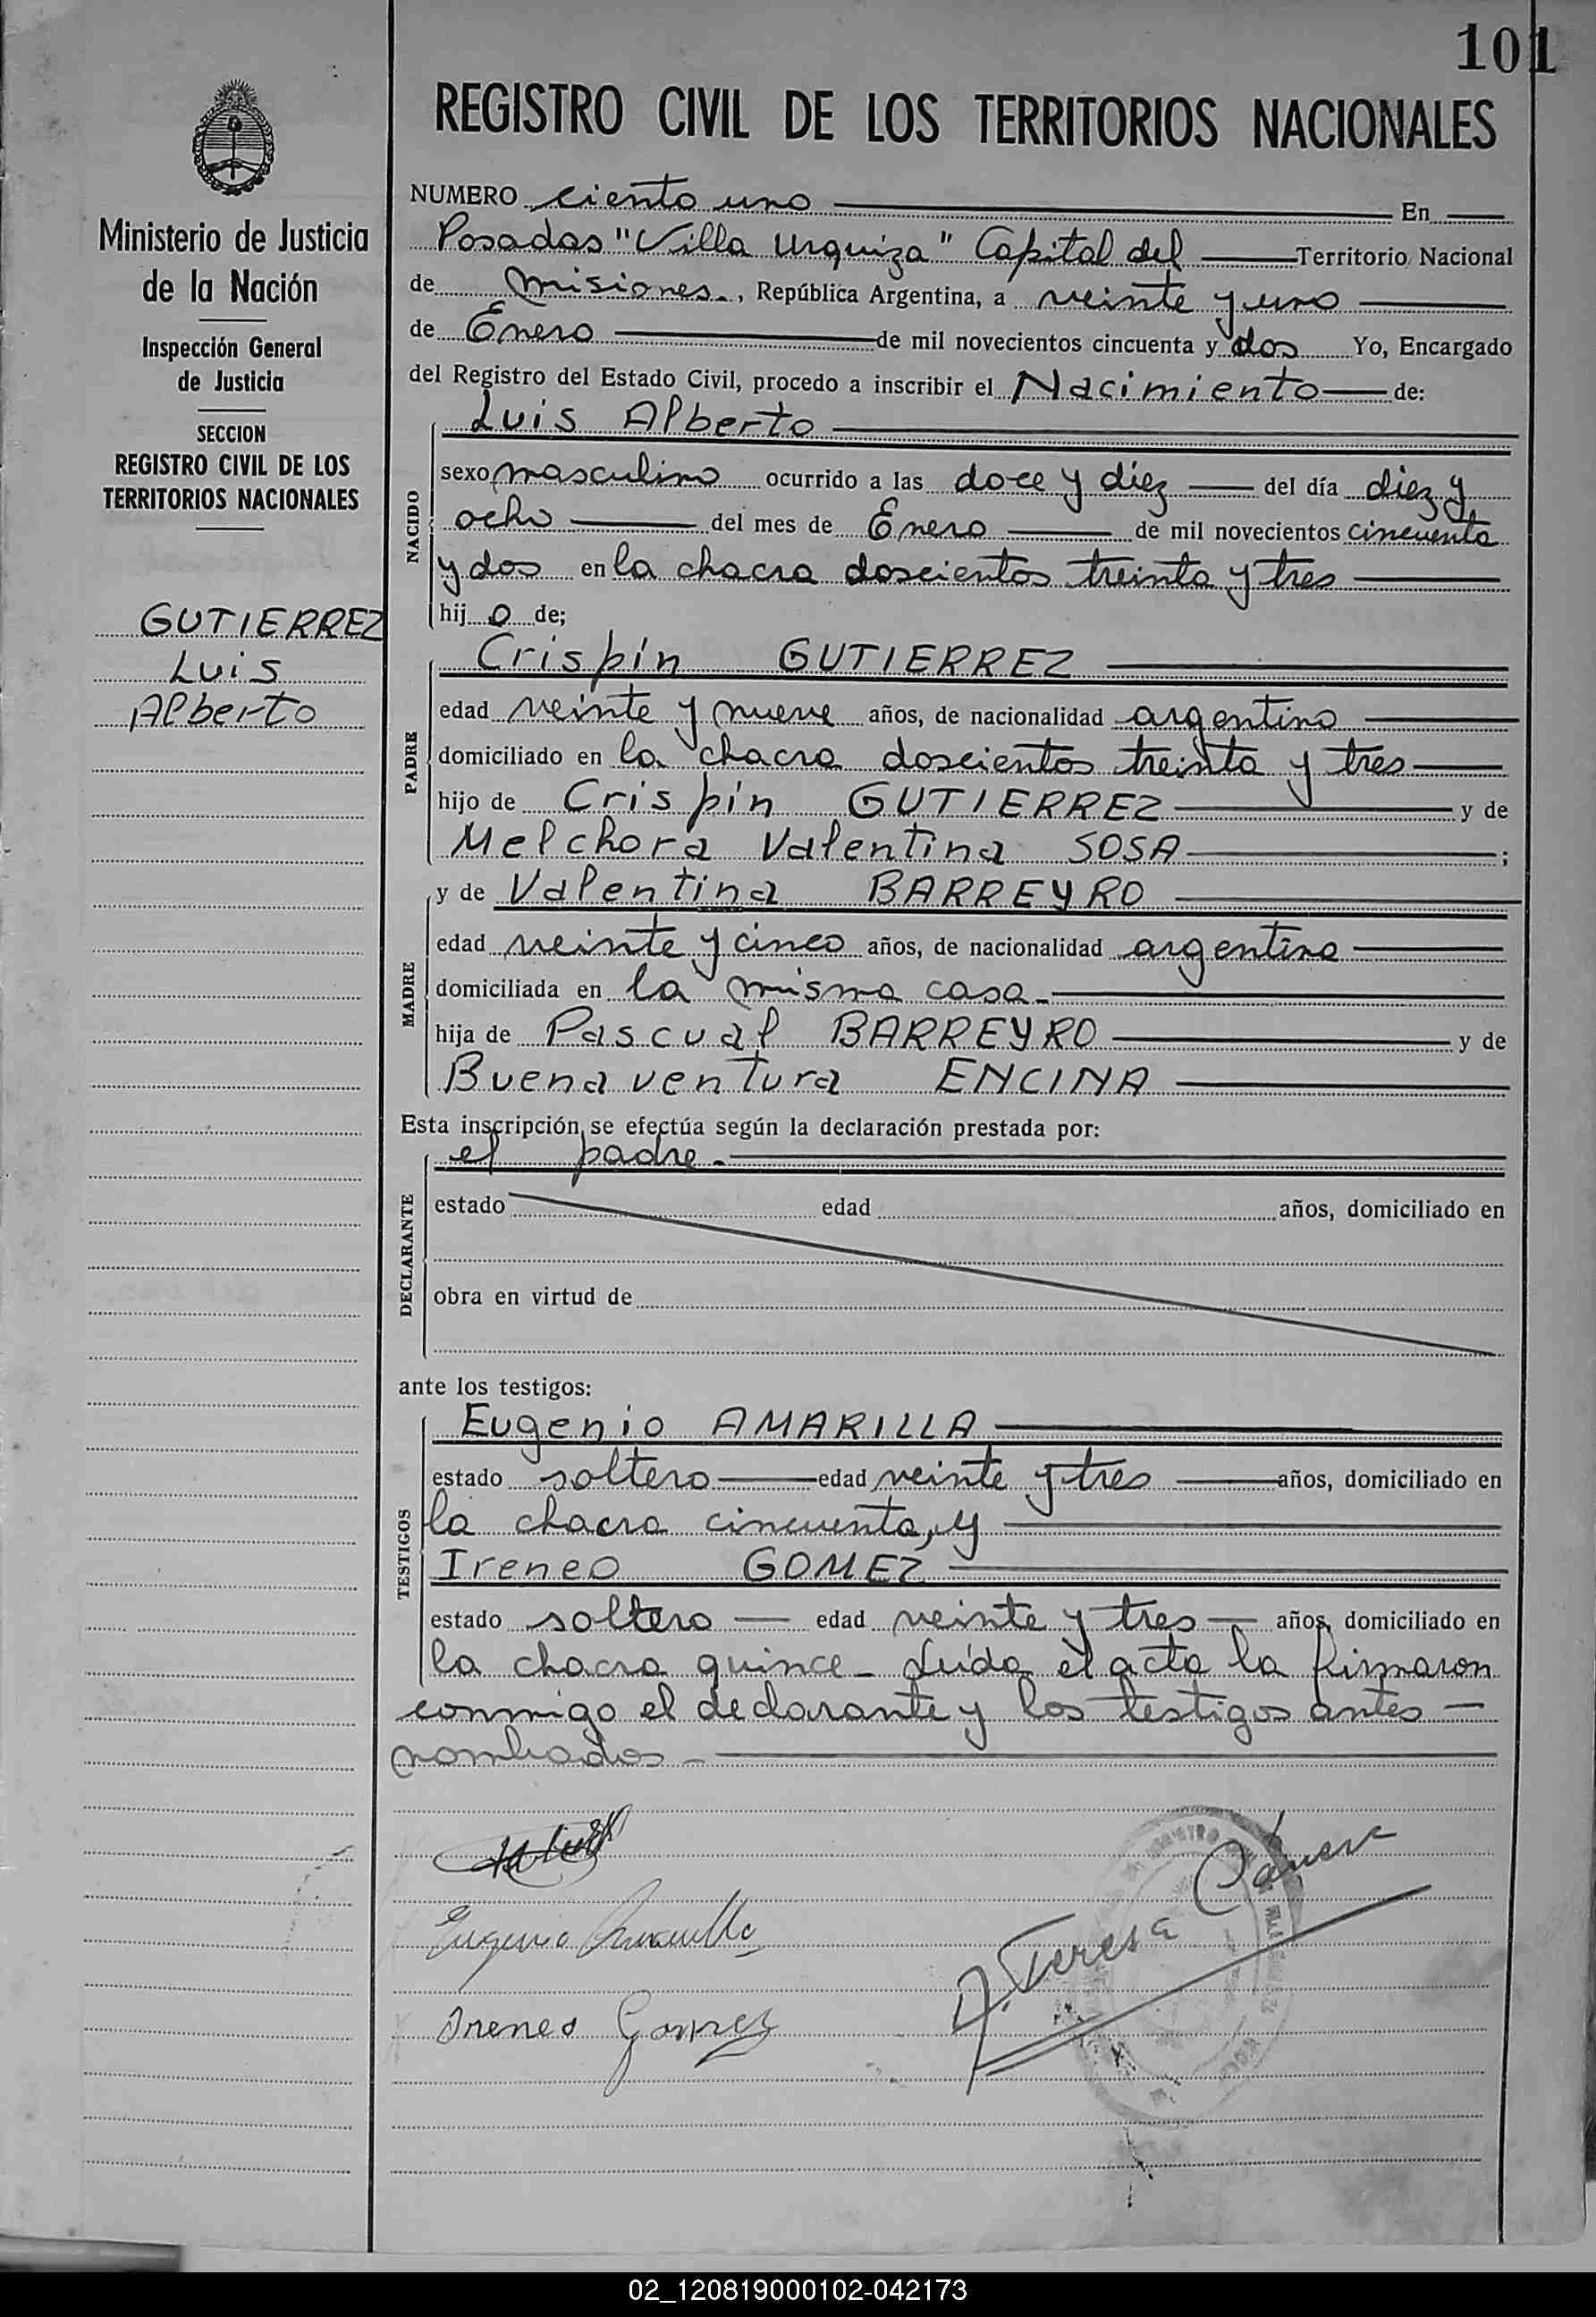 101
REGISTRO CIVIL DE LOS TERRITORIOS NACIONALES
Ministerio de Justicia
de la Nación
Inspección General
de Justicia
SECCION
REGISTRO CIVIL DE LOS
TERRITORIOS NACIONALES
GUTIERREZ
Luis
Alberto
NUMERO ciento uno En
Posadas "Villa Urquiza" Capital del Territorio Nacional
de misiones., República Argentina, a veinte y uno
de Enero de mil novecientos cincuenta y dos Yo, Encargado
del Registro del Estado Civil, procedo a inscribir el Nacimiento de:
NACIDO
Luis Alberto
sexo masculino ocurrido a las doce y diez del día diez y
ocho del mes de Enero de mil novecientos cincuenta
y dos en la chacra doscientos treinta y tres
hij o de;
PADRE
Crispín GUTIERREZ
edad veinte y nueve años, de nacionalidad argentino
domiciliado en la chacra doscientos treinta y tres
hijo de Crispín GUTIERREZ y de
Melchora Valentina SOSA ;
MADRE
y de Valentina BARREYRO
edad veinte y cinco años, de nacionalidad argentina
domiciliada en la misma casa.
hija de Pascual BARREYRO y de
Buenaventura ENCINA
Esta inscripción se efectúa según la declaración prestada por:
DECLARANTE
el padre.
estado edad años, domiciliado en
obra en virtud de
ante los testigos:
TESTIGOS
Eugenio AMARILLA
estado soltero edad veinte y tres años, domiciliado en
la chacra cincuenta, y
Ireneo GOMEZ
estado soltero edad veinte y tres años, domiciliado en
la chacra quince. Leída el acta la firmaron
conmigo el declarante y los testigos antes
nombrados.
Eugenio Amarilla
Ireneo Gomez
Teresa
02_120819000102-042173